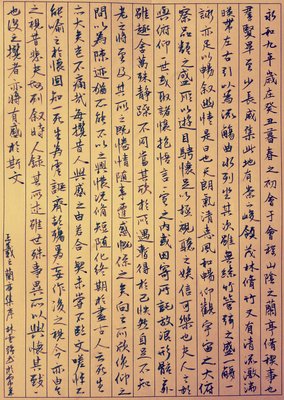 永和九年歲在癸丑暮春之初會于會稽山陰之蘭亭脩稧事也
群賢畢至少長咸集此地有崇山峻領茂林脩竹又有清流激湍
暎帶左右引以為流觴曲水列坐其次雖無絲竹管弦之盛一觴一
詠亦足以暢敘幽情是日也天朗氣清惠風和暢仰觀宇宙之大俯
察品類之盛所以遊目騁懷足以極視聽之娛信可樂也夫人之相
與俯仰一世或取諸懷抱悟言一室之內或因寄所託放浪形骸之外
雖趣舍萬殊靜躁不同當其欣於所遇暫得於己快然自足不知
老之將至及其所之既惓情隨事遷感慨係之矣向之所欣俛仰之
間以為陳迹猶不能不以之興懷況脩短隨化終期於盡古人云死生
亦大矣豈不痛哉每攬昔人興感之由若合一契未嘗不臨文嗟悼不
能喻之於懷固知一死生為虛誕齊彭殤為妄作後之視今亦由今
之視昔悲夫故列敘時人錄其所述雖世殊事異所以興懷其致一
也後之攬者亦將有感於斯文
王羲之蘭亭集序